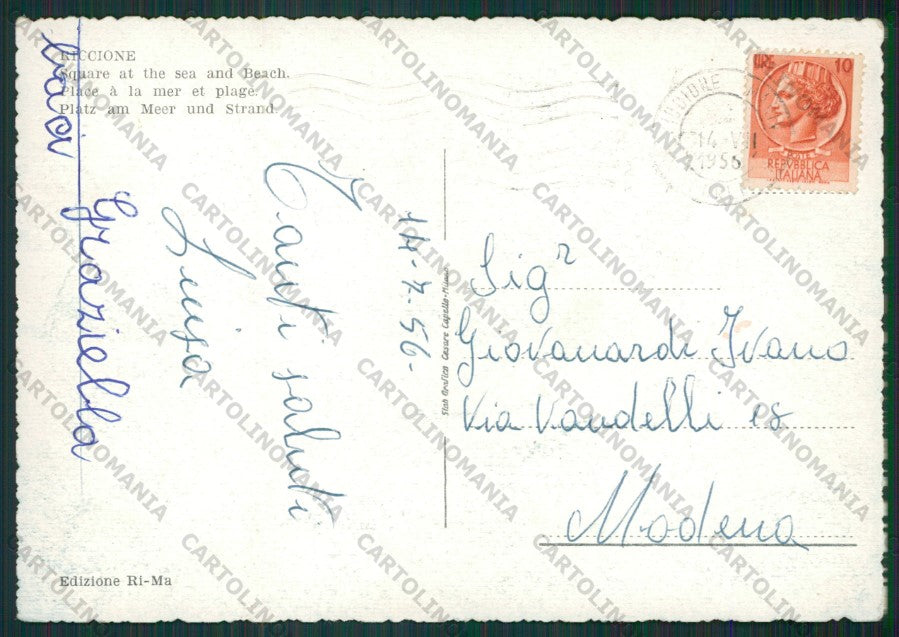 RICCIONE
Square at the sea and Beach.
Place à la mer et plage.
Platz am Meer und Strand.
baci
Graziella
Tanti saluti
Luisa
14-7-56-
Stab Grafico Cesare Capello-Milano
LIRE 10
POSTE
REPVBBLICA
ITALIANA
RICCIONE
14 VII
1956
Sigr
Giovanardi Ivano
Via Vandelli
Modena
Edizione Ri-Ma
CARTOLINOMANIA